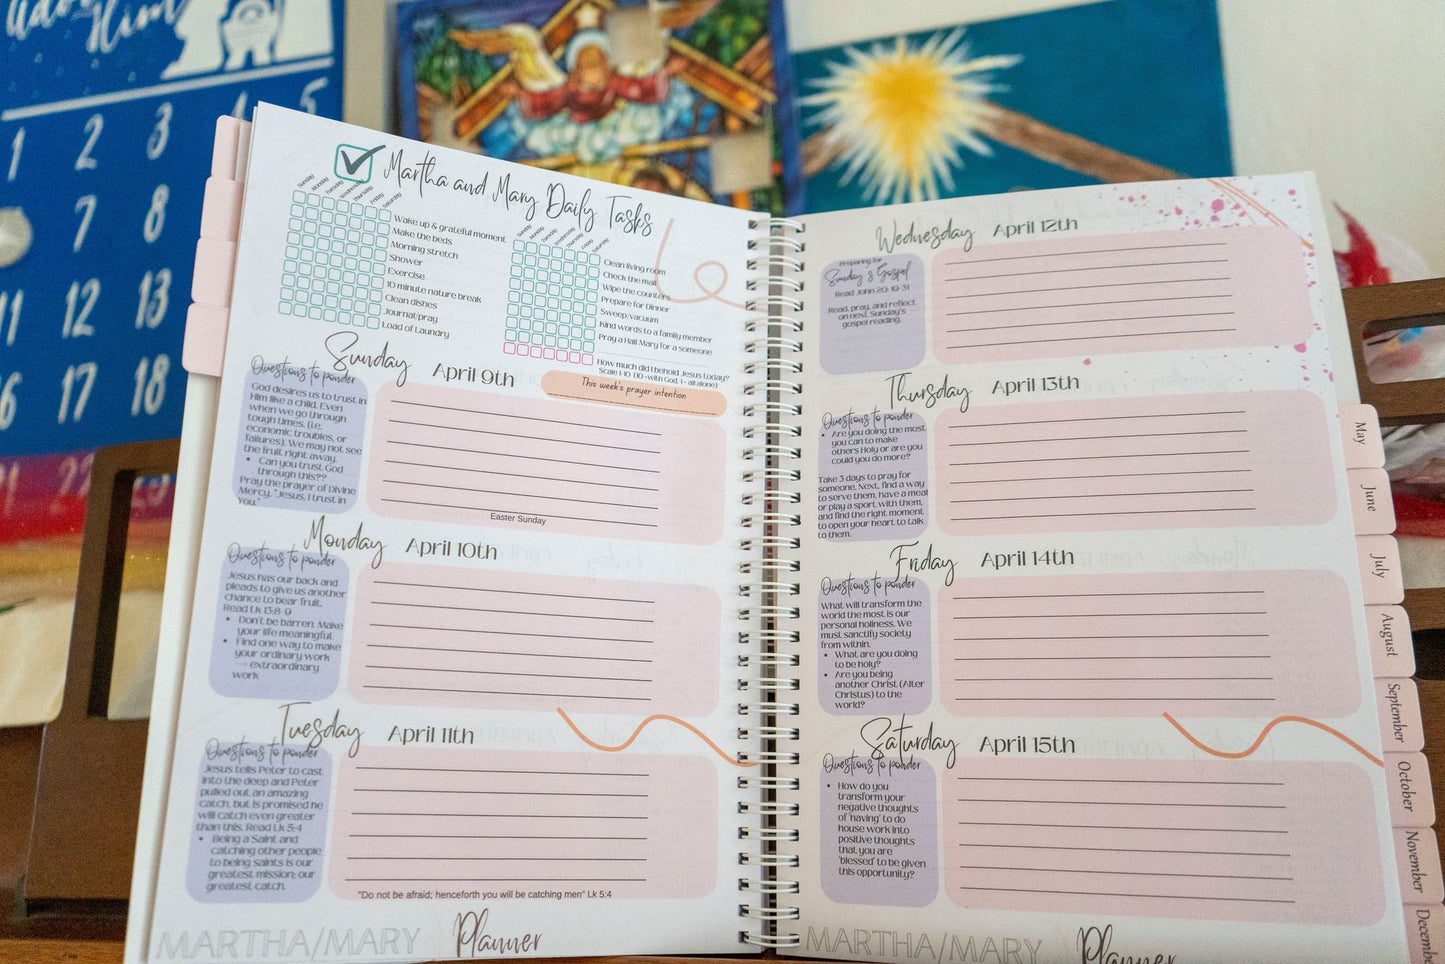 Adore
Him
1 2 3 4 5
7 8
11 12 13
16 17 18
21 22 23
Martha and Mary Daily Tasks
Sunday
Monday
Tuesday
Wednesday
Thursday
Friday
Saturday
Wake up & grateful moment
Make the beds
Morning stretch
Shower
Exercise
10 minute nature break
Clean dishes
Journal/pray
Load of Laundry
Sunday
Monday
Tuesday
Wednesday
Thursday
Friday
Saturday
Clean living room
Check the mail
Wipe the counters
Prepare for Dinner
Sweep/vacuum
Kind words to a family member
Pray a Hail Mary for a someone
How much did I behold Jesus today?
Scale 1-10 (10 -with God, 1 - all alone)
This week's prayer intention
Sunday April 9th
Questions to ponder
God desires us to trust in
Him like a child. Even
when we go through
tough times, (i.e.
economic troubles, or
failures). We may not see
the fruit right away.
• Can you trust God
through this??
Pray the prayer of Divine
Mercy, "Jesus, I trust in
You."
Easter Sunday
Monday April 10th
Questions to ponder
Jesus has our back and
pleads to give us another
chance to bear fruit.
Read Lk 13:8-9
• Don't be barren. Make
your life meaningful.
• Find one way to make
your ordinary work
--> extraordinary
work
Tuesday April 11th
Questions to ponder
Jesus tells Peter to cast
into the deep and Peter
pulled out an amazing
catch, but is promised he
will catch even greater
than this. Read Lk 5:4
• Being a Saint and
catching other people
to being saints is our
greatest mission; our
greatest catch.
"Do not be afraid; henceforth you will be catching men" Lk 5:4
MARTHA/MARY Planner
Wednesday April 12th
Preparing for
Sunday's Gospel
Read John 20: 19-31
Read, pray, and reflect
on next Sunday's
gospel reading.
Thursday April 13th
Questions to ponder
• Are you doing the most
you can to make
others Holy or are you
could you do more?
Take 3 days to pray for
someone. Next, find a way
to serve them, have a meal
or play a sport with them,
and find the right moment
to open your heart to talk
to them.
Friday April 14th
Questions to ponder
What will transform the
world the most is our
personal holiness. We
must sanctify society
from within.
• What are you doing
to be holy?
• Are you being
another Christ (Alter
Christus) to the
world?
Saturday April 15th
Questions to ponder
• How do you
transform your
negative thoughts
of 'having' to do
house work into
positive thoughts
that you are
'blessed' to be given
this opportunity?
MARTHA/MARY Planner
May
June
July
August
September
October
November
December